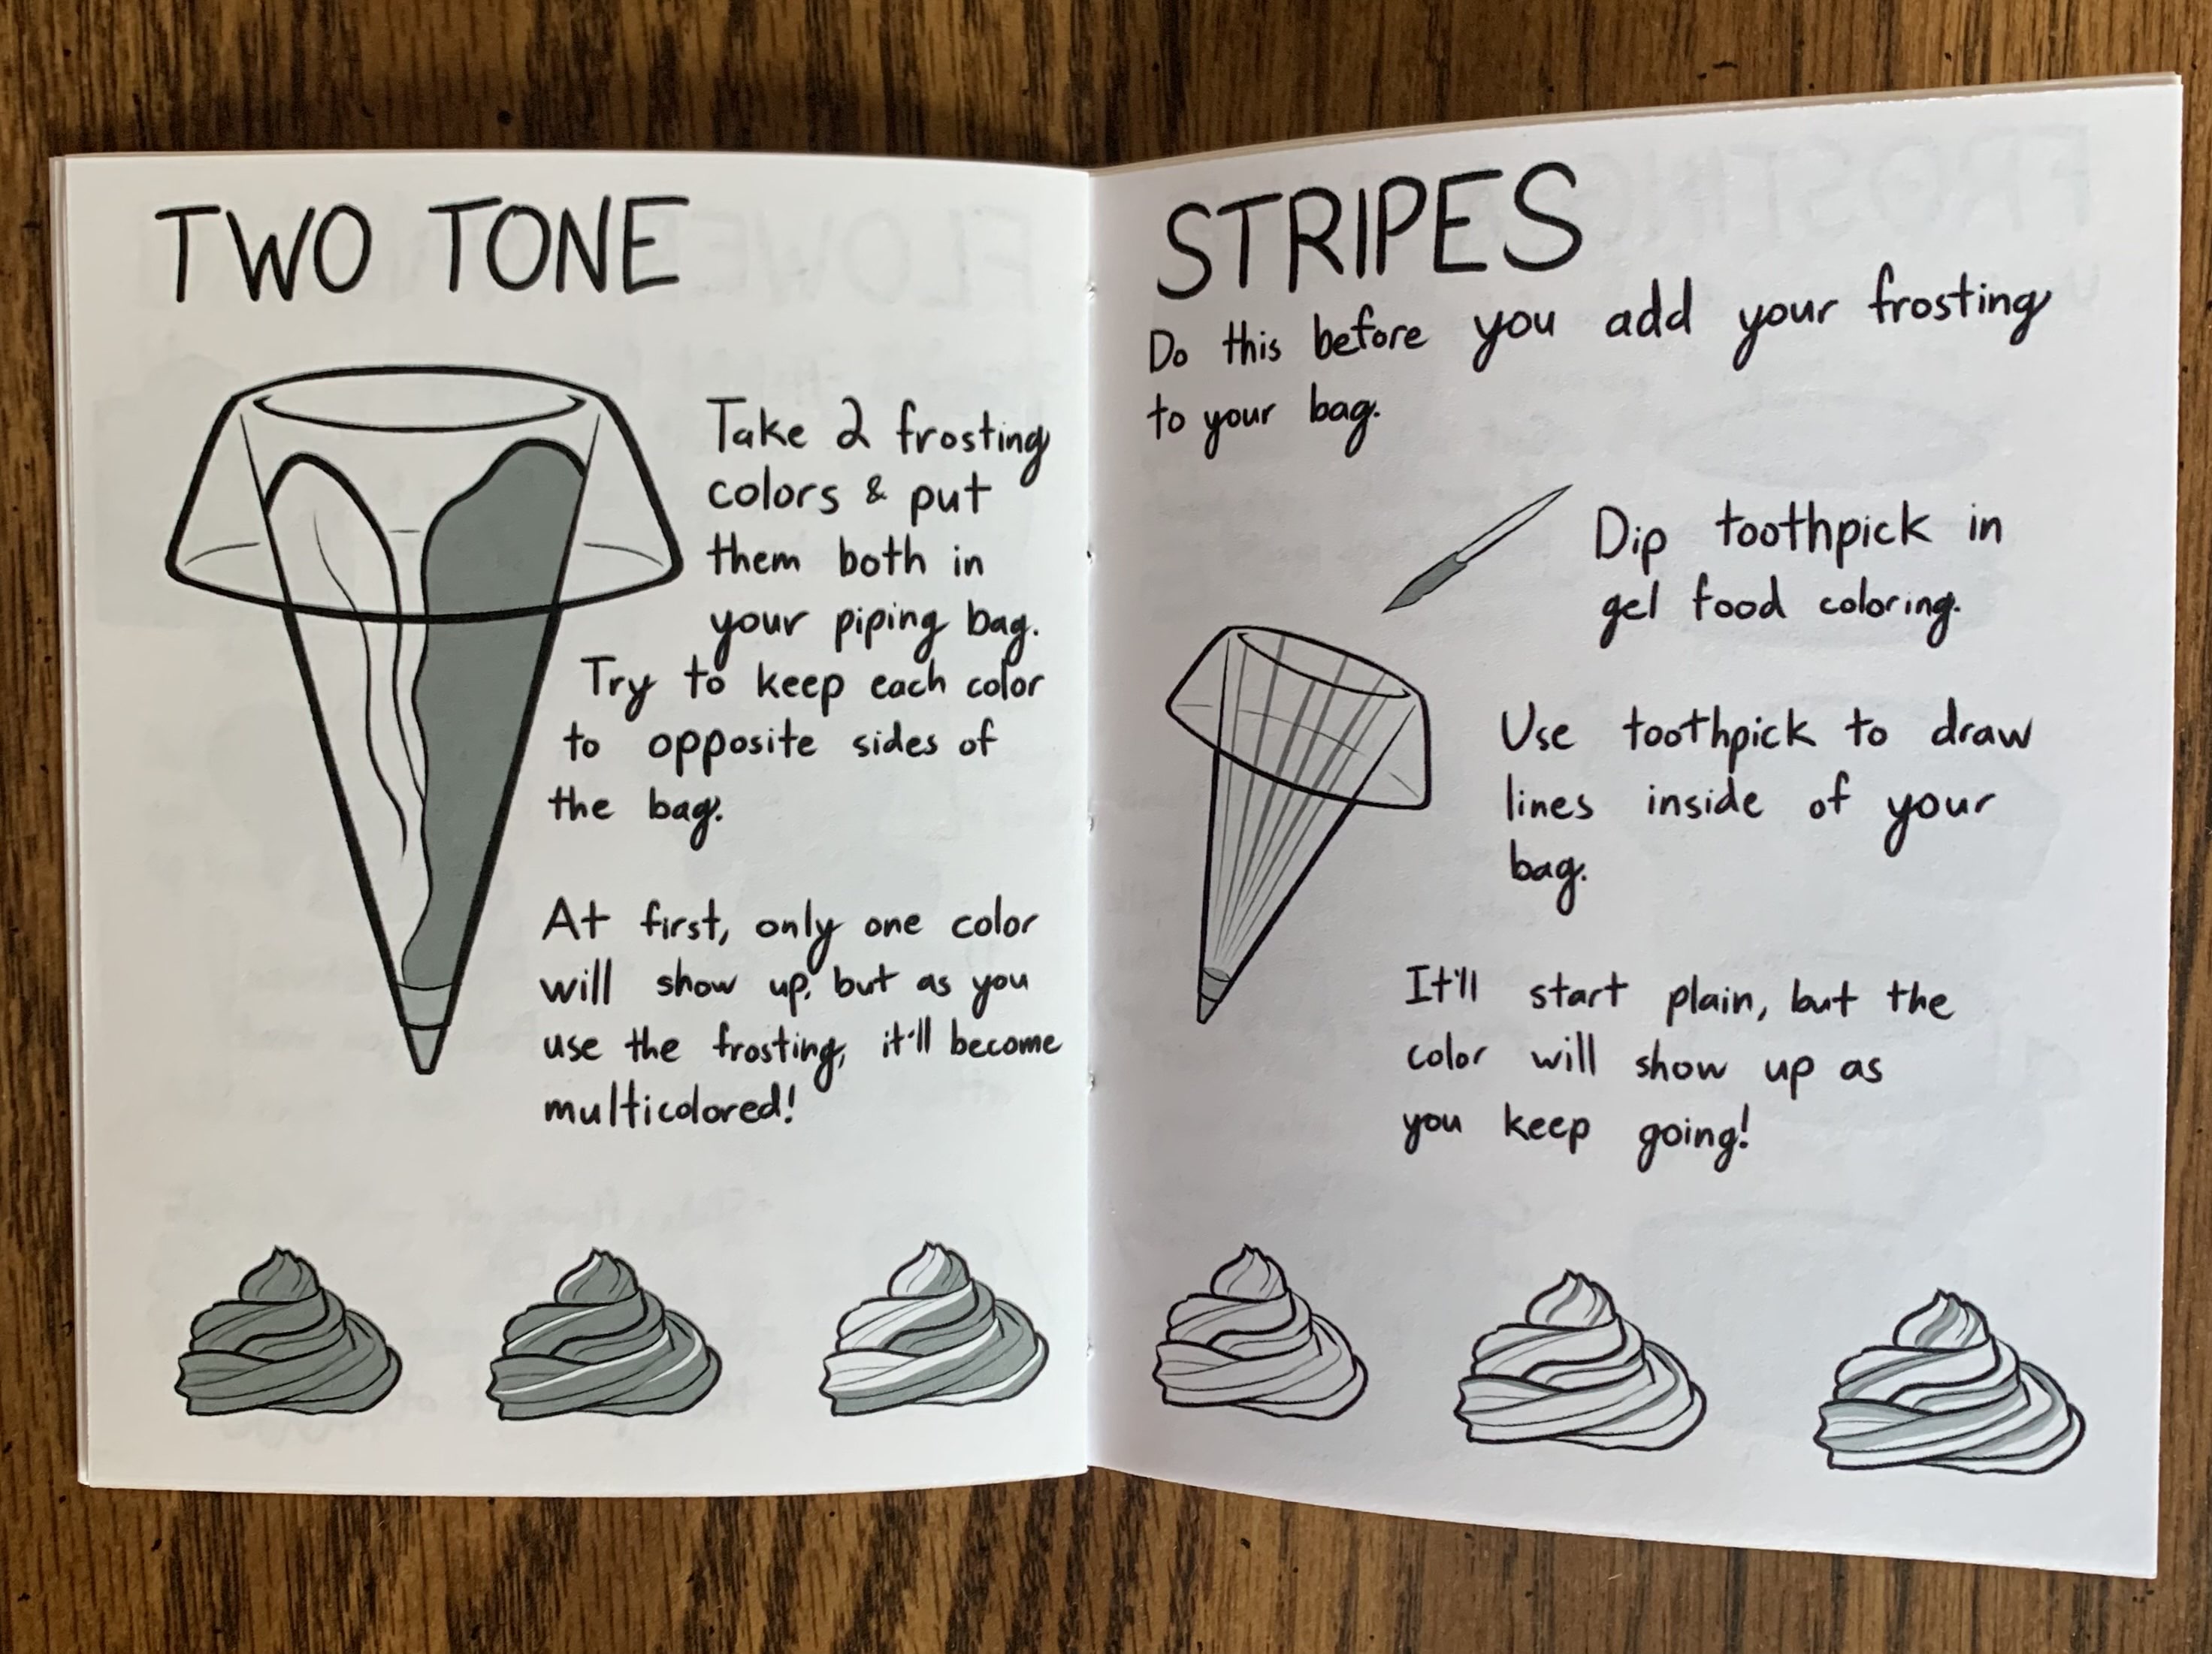 TWO TONE
Take 2 frosting
colors & put
them both in
your piping bag.
Try to keep each color
to opposite sides of
the bag.
At first, only one color
will show up, but as you
use the frosting, it'll become
multicolored!
STRIPES
Do this before you add your frosting
to your bag.
Dip toothpick in
gel food coloring.
Use toothpick to draw
lines inside of your
bag.
It'll start plain, but the
color will show up as
you keep going!